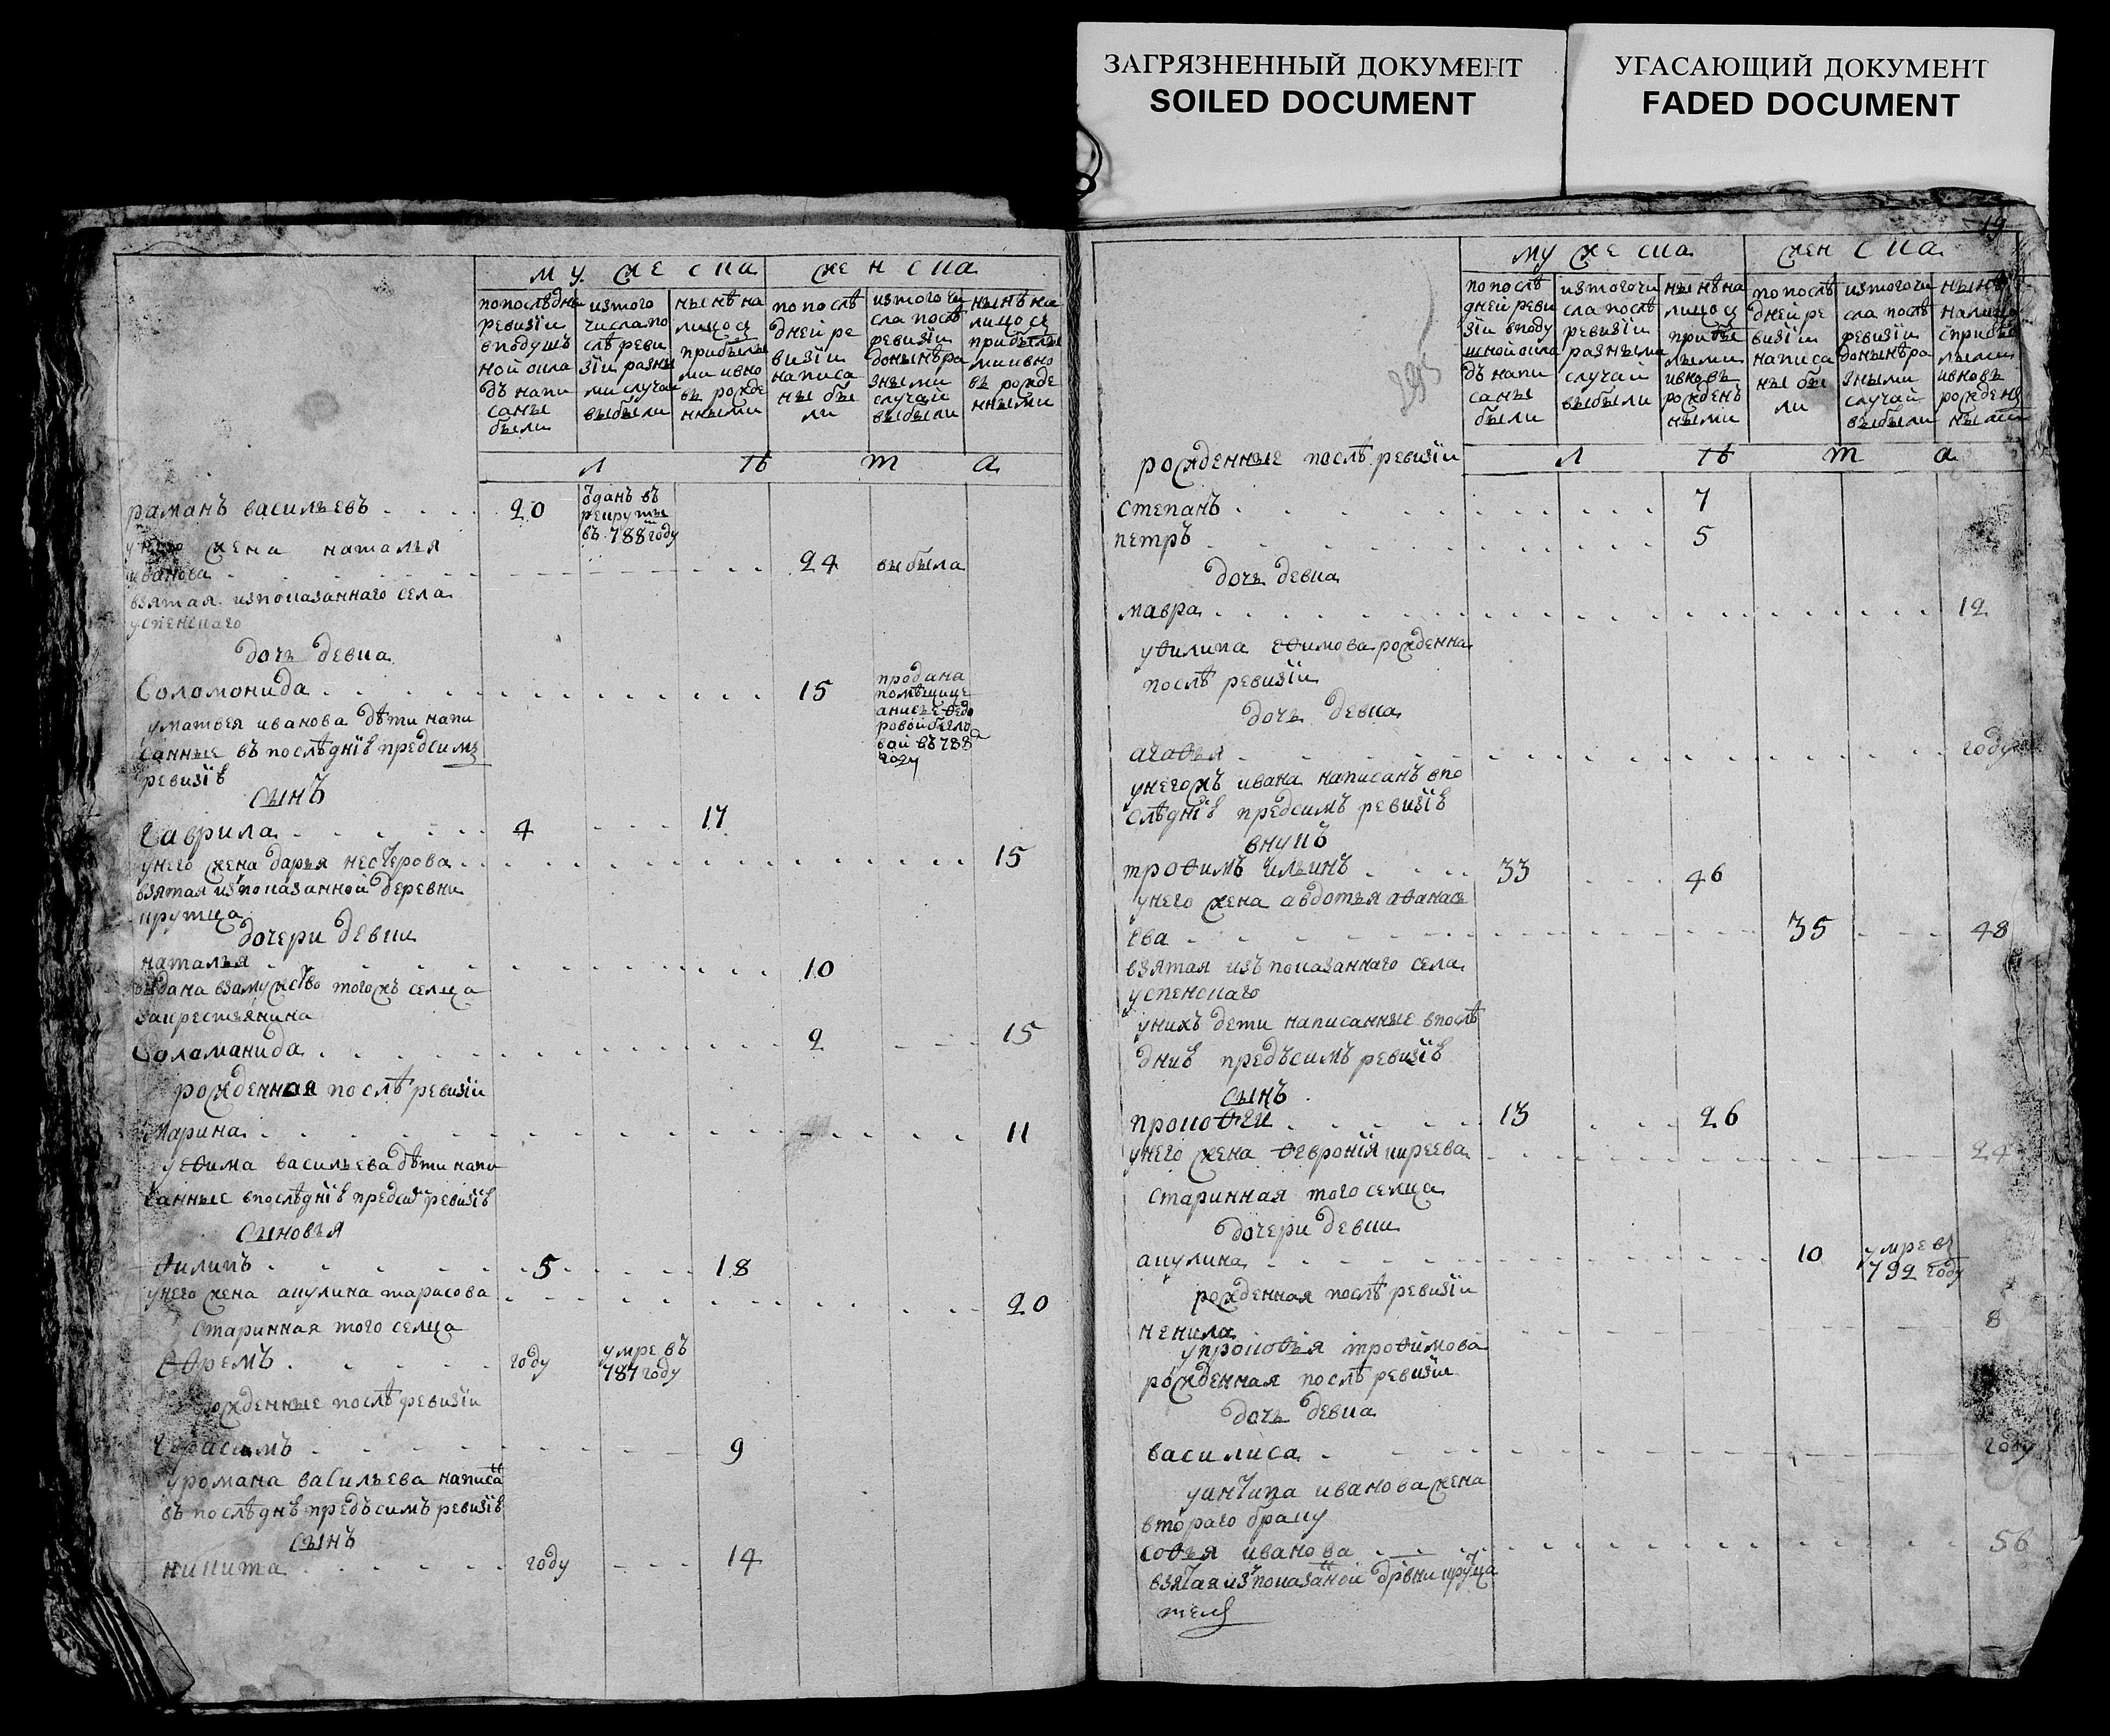 ЗАГРЯЗНЕННЫЙ ДОКУМЕНТ
SOILED DOCUMENT
УГАСАЮЩИЙ ДОКУМЕНТ
FADED DOCUMENT
мужеска
женска
попослѣдне
ревизіи
вподушъ
ной окла
дъ напи
саны
были
изтого
числапо
слѣ реви
зіи разны
ми случаи
выбыли
нынѣ на
лицо съ
прибылы
ми ивно
въ рожде
нными
по послѣ
дней ре
визіи
написа
ны бы
ли
изтого чи
сла послѣ
ревизіи
донынѣ ра
зными
случаи
выбыли
нынѣ на
лицо съ
прибылы
ми ивно
въ рожде
нными
лѣта
раманъ васильевъ 20
ѿданъ въ
рекруты
въ 788 году
у него жена наталья
иванова 24 выбыла
взятая изпоказаннаго села
успенскаго
дочь девка
Соломонида 15
продана
помѣщице
анисье Ѳедо
ровой
въ 788
году
уматвея иванова дѣти напи
санные въ послѣдніѣ предсимъ
ревизіѣ
сынъ
Гаврила 4 17
унего жена дарья нестерова 15
взятая изпоказанной деревни
крутца
дочери девки
наталья 10
выдана взамужство тогожъ селца
закрестьянина
Соламанида 2 15
рожденная послѣ ревизіи
марина 11
уеѳима васильева дѣти напи
санные впослѣдніѣ предсимъ ревизіѣ
сыновья
Ѳилипъ 5 18
унего жена акулина тарасова 20
старинная того селца
Еѳремъ году
умре въ
787 году
рожденные послѣ ревизіи
Герасимъ 9
уромана васильева написанъ
въ послѣднѣ предъсимъ ревизіѣ
сынъ
никита году 14
19
мужеска
женска
попослѣ
дней реви
зіи вподу
шной окла
дъ напи
саны
были
изтого чи
сла послѣ
ревизіи
разными
случаи
выбыли
нынѣ на
лицо съ
прибы
лыми
ивновь
рожденъ
ными
по послѣ
дней ре
визіи
написа
ны бы
ли
изтого чи
сла послѣ
ревизіи
донынѣ ра
зными
случаи
выбыли
нынѣ
налицо
сприбы
лыми
ивновь
рожден
ными
рожденные послѣ ревизіи
лѣта
степанъ 7
петръ 5
дочь девка
мавра 12
уѲилипа еѳимова рожденна
послѣ ревизіи
дочь девка
агаѳья году
унегожъ ивана написанъ впо
слѣдніѣ предсимъ ревизіѣ
внукъ
троѳимъ ильинъ 33 46
унего жена авдотья аѳанась
ева 35 48
взятая изъ показаннаго села
успенскаго
унихъ дети написанные впослѣ
дниѣ предъсимъ ревизіѣ
сынъ
прокоѳеи 13 26
унего жена Ѳевронія киреева 24
старинная того селца
дочери девки
акулина 10
умре въ
792 году
рожденная послѣ ревизіи
ненила 8
упрокоѳья троѳимова
рожденная послѣ ревизіи
дочь девка
василиса году
уантипа иванова жена
втораго браку
соѳья иванова 56
взятая изъ показанной дрвни крутца